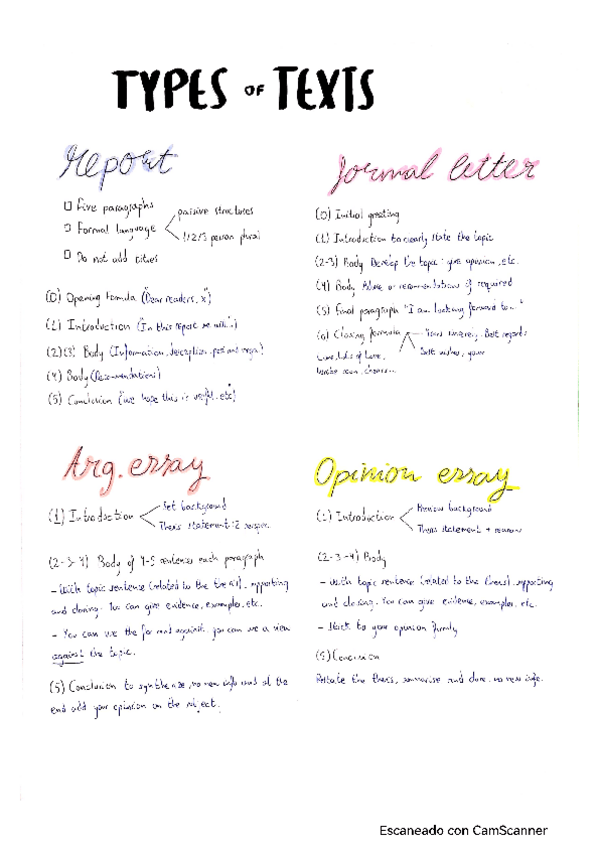 TYPES OF TEXTS
Report
Five paragraphs
Formal language
passive structures
1/2/3 person plural
Do not add
(0) Opening Formula ("Dear readers, x")
(1) Introduction (In this report we
(2)(3) Body (Information, description, pos and
(4) Body (Recommendations)
(5) Conclusion (we hope this is useful, etc)
Formal letter
(0) Initial greeting
(1) Introduction to clearly state the topic
(2-3) Body Develop the topic: give opinion, etc.
(4) Body or recommendations if required
(5) Final paragraph "I am looking forward to..."
(6) Closing formula
Yours sincerely, Best regards
Best wishes, your
Love, lots of love,
write soon, cheers...
Arg. essay
(1) Introduction
Set background
Thesis statement: 2
(2-3-4) Body of 4-5 sentences each paragraph
- With topic sentence (related to the thesis), supporting
and closing. You can give evidence, examples, etc.
- You can use the for and against, you can use a view
against the topic.
(5) Conclusion to synthesise, no new info and at the
end add your opinion on the subject.
Opinion essay
(1) Introduction
Review background
Thesis statement + reasons
(2-3-4) Body
- With topic sentence (related to the thesis), supporting
and closing. You can give evidence, examples, etc.
- Stick to your opinion firmly
(5) Conclusion
Restate the thesis, summarise and close, no new info.
Escaneado con CamScanner